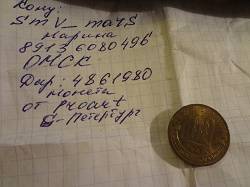 Кому:
smv_mars
Марина
8913 6080496
ОМСК
Дар: 4861980
монеты
от Proart
С-Петербург